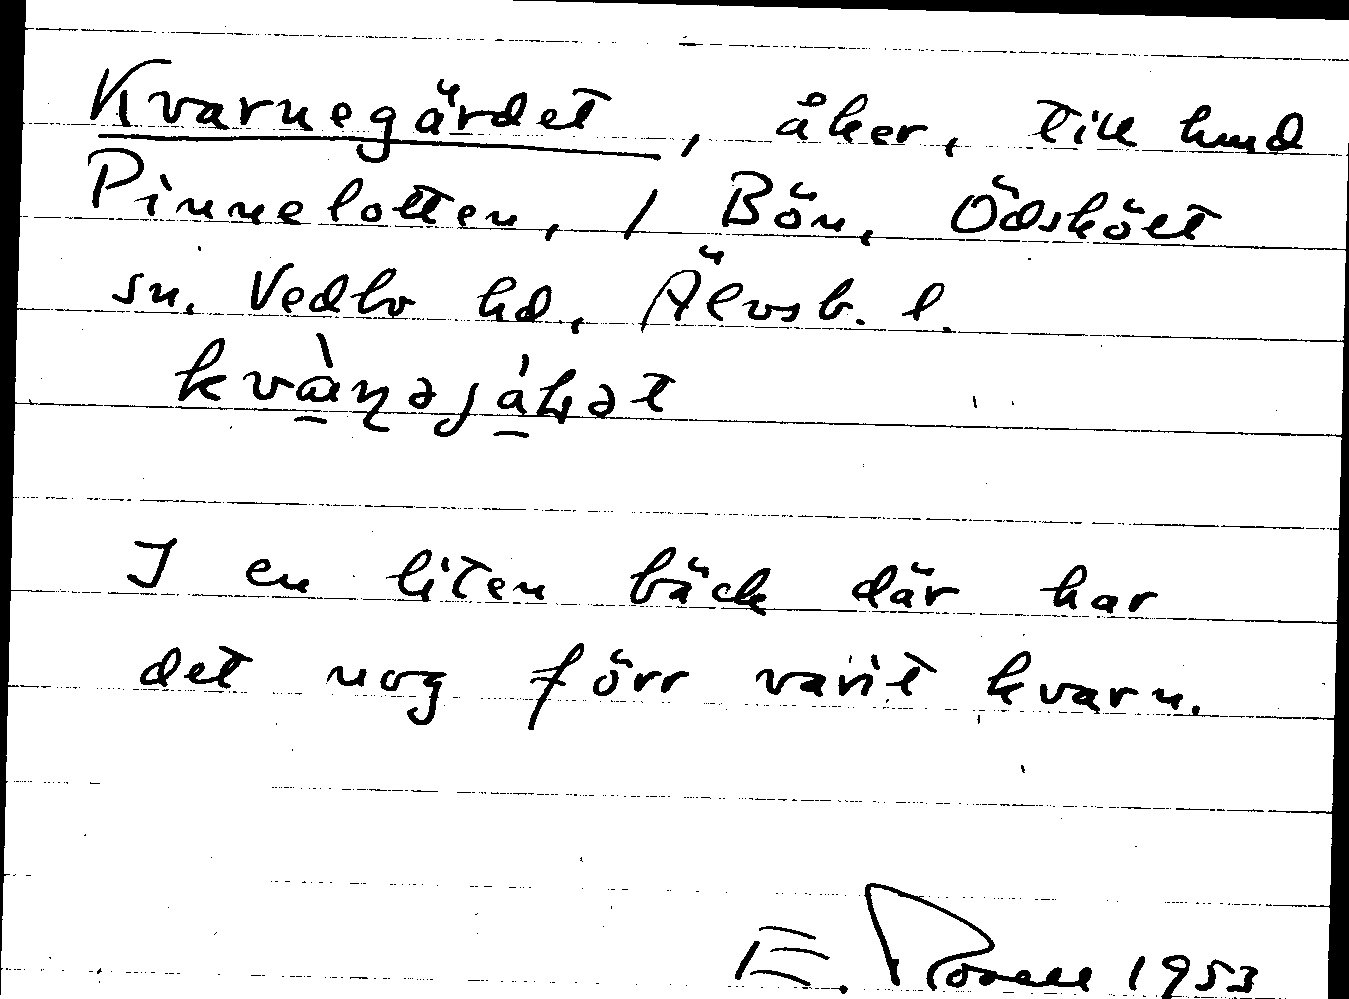 Kvarnegärdet, åker, till hmd
Pinnelotten, / Bön, Ödskölt
sn. Vedbo hd, Älvsb. l.
I en liten bäck där har
det nog förr varit kvarn.
E. 1953